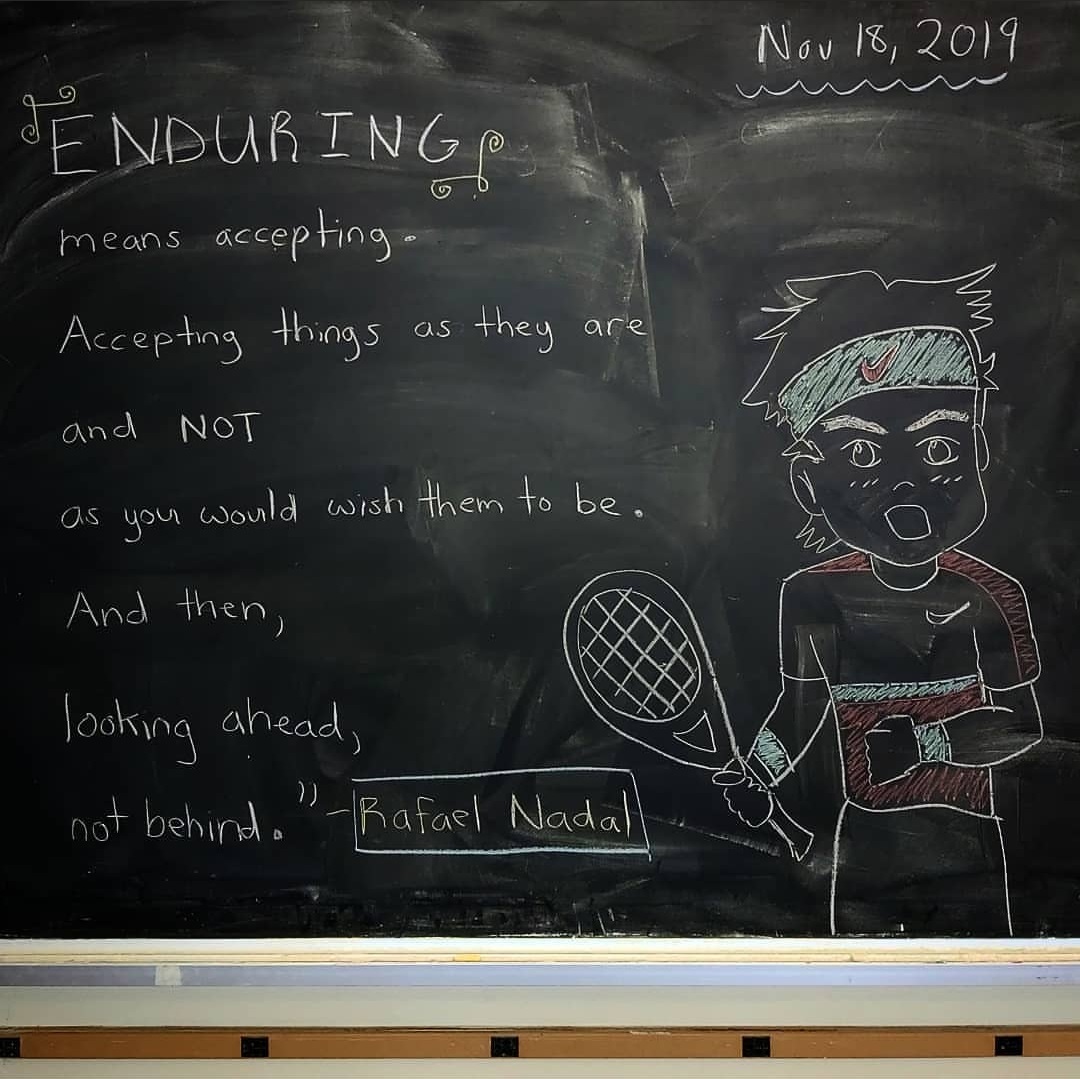 Nov 18, 2019
ENDURING
means accepting.
Accepting things as they are
and NOT
as you would wish them to be.
And then,
looking ahead,
not behind." - Rafael Nadal